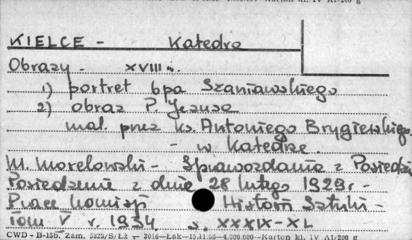 KIELCE - Katedra
Obrazy - XVIII w.
1) portret bpa Szaniawskiego
2) obraz P. Jezusa
mal. przez ks. Antoniego Brygierskiego
- w Katedrze.
M. Morelowski - Sprawozdanie z Posiedz
Posiedzenie z dnia 28 lutego 1929 r -
Prace Komisji Historii Sztuki -
tom V r. 1934 s. XXXIX-XL
CWD - B-15b. Zam. Karton kl. IV A1/200 g